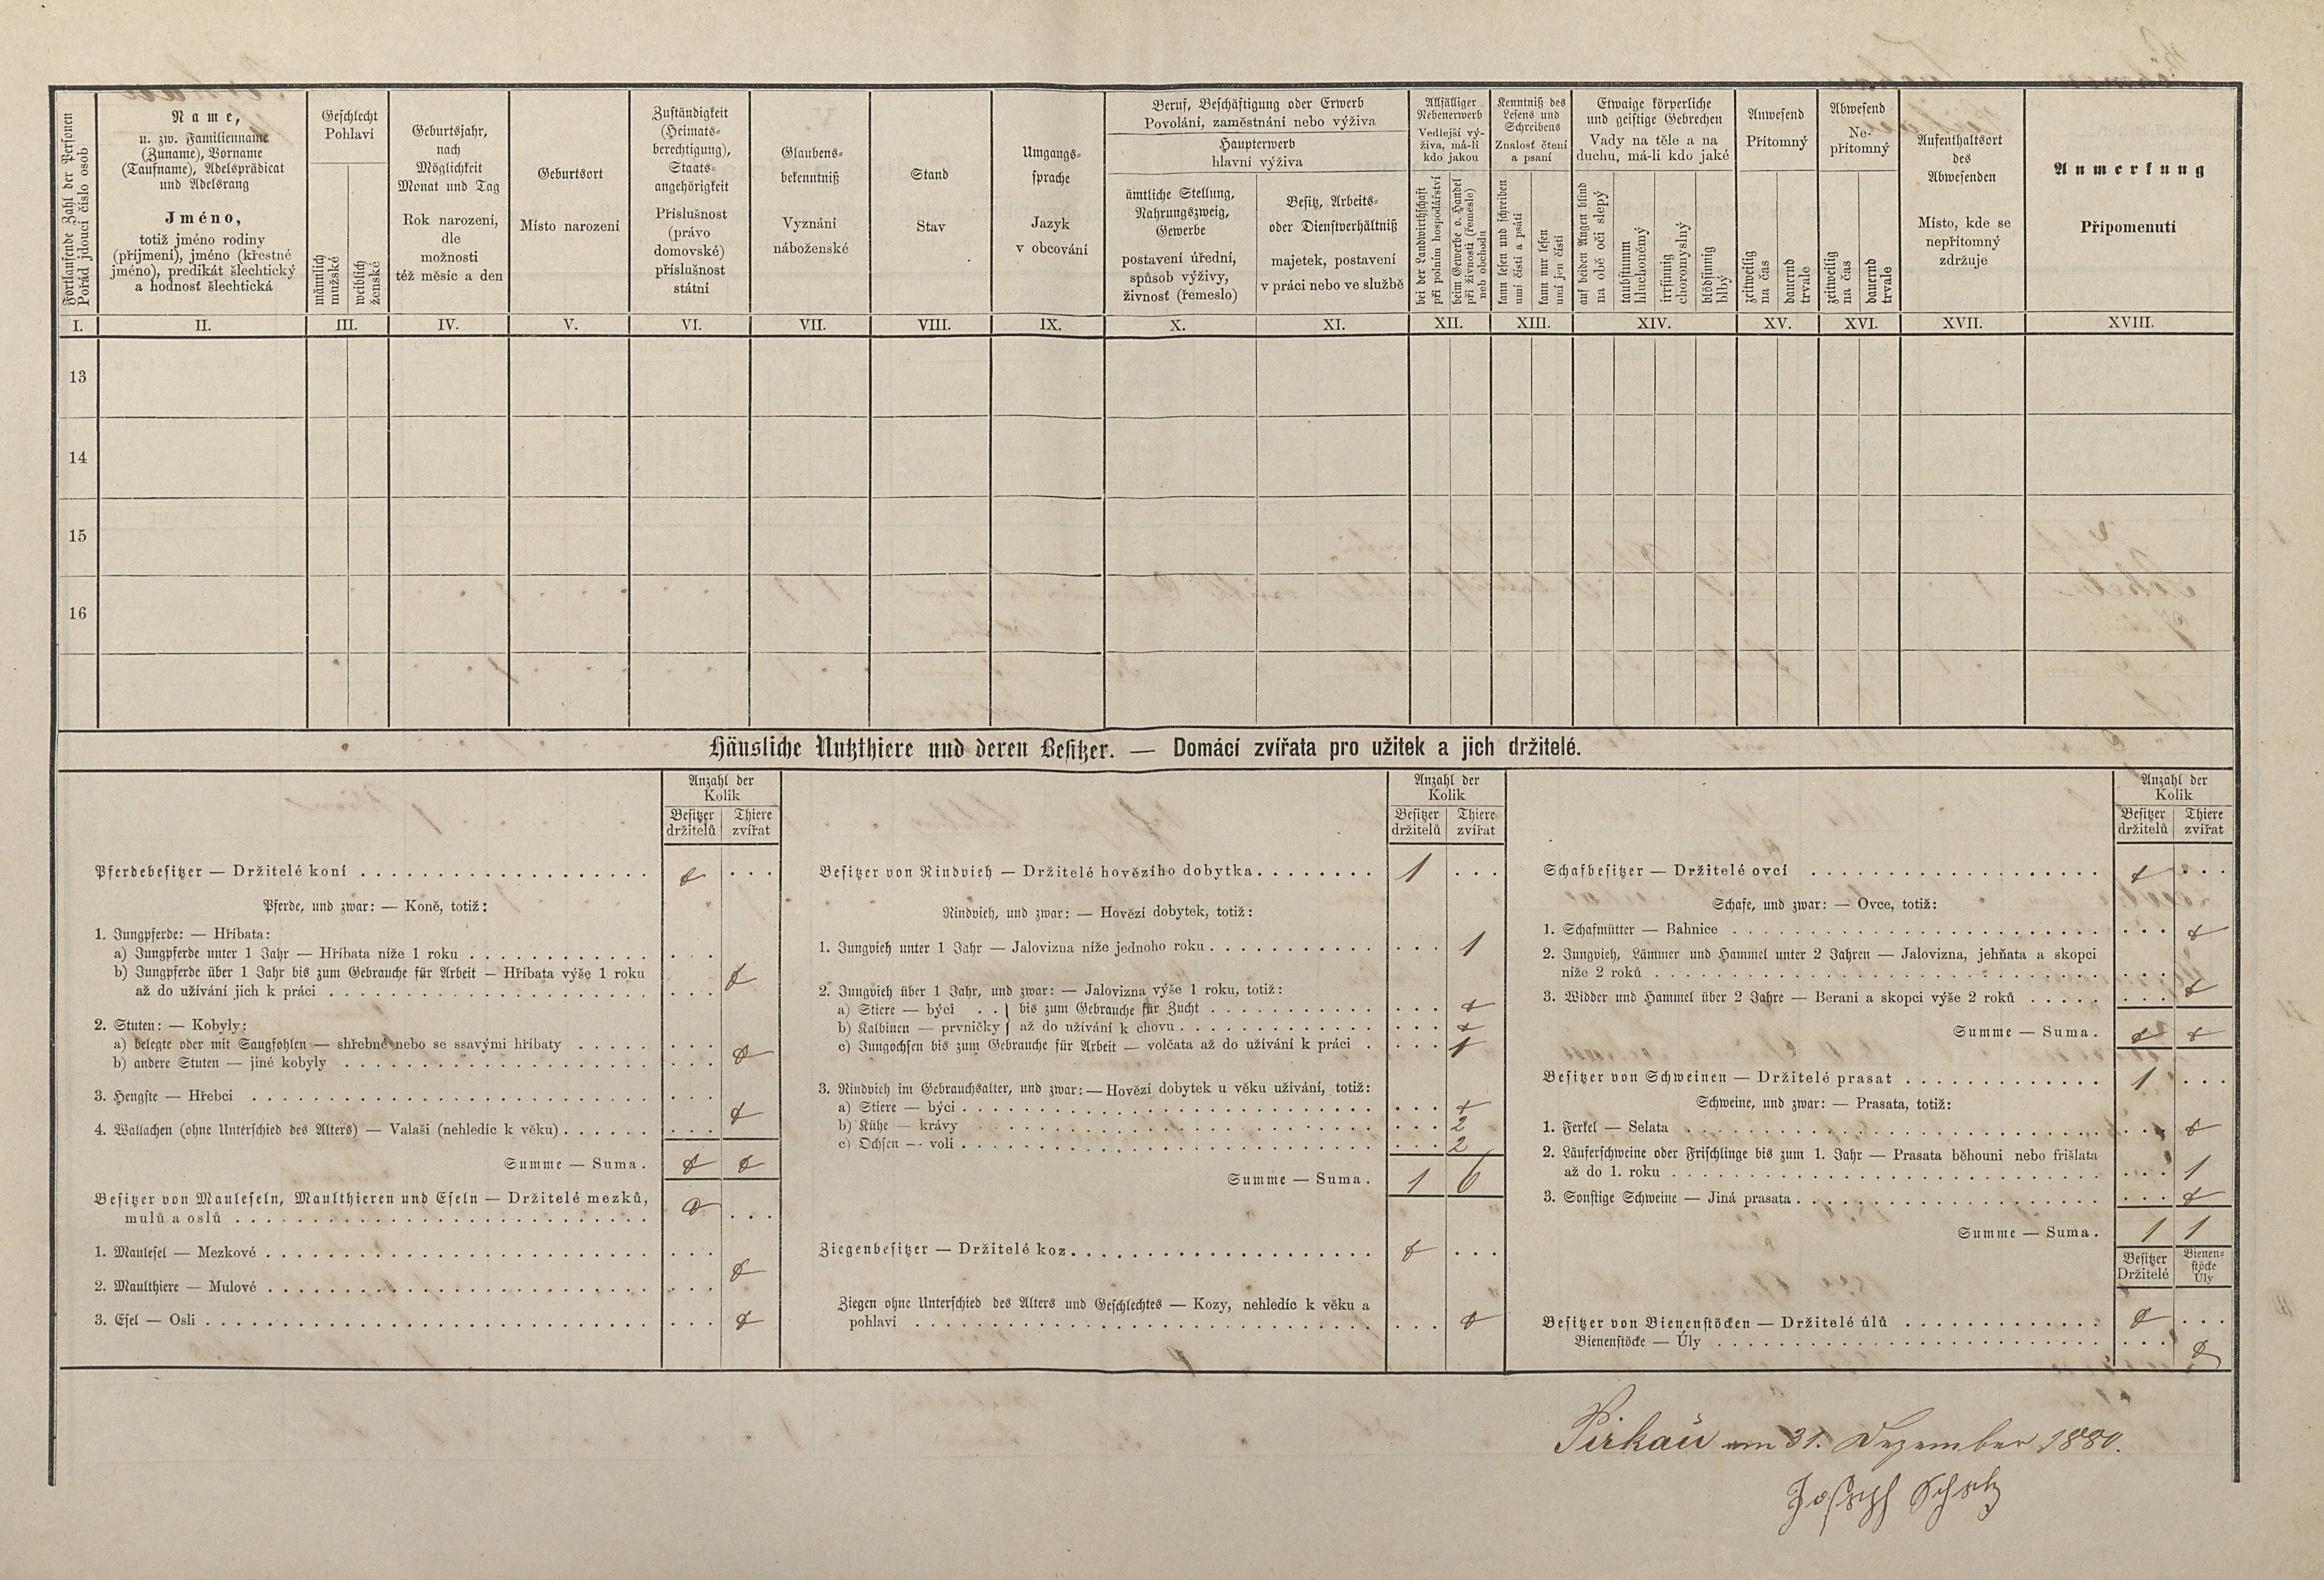 Fortlaufende Zahl der Personen
Pořád jdoucí číslo osob
Name,
u. zw. Familienname
(Zuname), Vorname
(Taufname), Adelsprädicat
und Adelsrang
Jméno,
totiž jméno rodiny
(příjmení), jméno (křestné
jméno), predikát šlechtický
a hodnosť šlechtická
Geschlecht
Pohlaví
männlich
mužské
weiblich
ženské
Geburtsjahr,
nach
Möglichkeit
Monat und Tag
Rok narození,
dle
možnosti
též měsíc a den
Geburtsort
Místo narození
Zuständigkeit
(Heimats-
berechtigung),
Staats-
angehörigkeit
Příslušnost
(právo
domovské)
příslušnost
státní
Glaubens-
bekenntniß
Vyznání
náboženské
Stand
Stav
Umgangs-
sprache
Jazyk
v obcování
Beruf, Beschäftigung oder Erwerb
Povolání, zaměstnání nebo výživa
Haupterwerb
hlavní výživa
ämtliche Stellung,
Nahrungszweig,
Gewerbe
postavení úřední,
spůsob výživy,
živnosť (řemeslo)
Besitz, Arbeits-
oder Dienstverhältniß
majetek, postavení
v práci nebo ve službě
Allfälliger
Nebenerwerb
Vedlejší vý-
živa, má-li
kdo jakou
bei der Landwirthschaft
při polním hospodářství
beim Gewerbe o. Handel
při živnosti (řemesle)
neb obchodu
Kenntniß des
Lesens und
Schreibens
Znalosť čtení
a psaní
kann lesen und schreiben
umí čísti a psáti
kann nur lesen
umí jen čísti
Etwaige körperliche
und geistige Gebrechen
Vady na těle a na
duchu, má-li kdo jaké
auf beiden Augen blind
na obě oči slepý
taubstumm
hluchoněmý
irrsinnig
choromyslný
blödsinnig
blbý
Anwesend
Přítomný
zeitweilig
na čas
dauernd
trvale
Abwesend
Ne-
přítomný
zeitweilig
na čas
dauernd
trvale
Aufenthaltsort
des
Abwesenden
Místo, kde se
nepřítomný
zdržuje
Anmerkung
Připomenutí
I. II. III. IV. V. VI. VII. VIII. IX. X. XI. XII. XIII. XIV. XV. XVI. XVII. XVIII.
13
14
15
16
Häusliche Nutzthiere und deren Besitzer. — Domácí zvířata pro užitek a jich držitelé.
Anzahl der
Kolik
Besitzer Thiere
držitelů zvířat
Pferdebesitzer — Držitelé koní
Pferde, und zwar: — Koně, totiž:
1. Jungpferde: — Hříbata:
a) Jungpferde unter 1 Jahr — Hříbata níže 1 roku
b) Jungpferde über 1 Jahr bis zum Gebrauche für Arbeit — Hříbata výše 1 roku
až do užívání jich k práci
2. Stuten: — Kobyly:
a) belegte oder mit Saugfohlen — shřebné nebo se ssavými hříbaty
b) andere Stuten — jiné kobyly
3. Hengste — Hřebci
4. Wallachen (ohne Unterschied des Alters) — Valaši (nehledíc k věku)
Summe — Suma.
Besitzer von Mauleseln, Maulthieren und Eseln — Držitelé mezků,
mulů a oslů
1. Maulesel — Mezkové
2. Maulthiere — Mulové
3. Esel — Osli
Anzahl der
Kolik
Besitzer Thiere
držitelů zvířat
Besitzer von Rindvieh — Držitelé hovězího dobytka 1
Rindvieh, und zwar: — Hovězí dobytek, totiž:
1. Jungvieh unter 1 Jahr — Jalovizna níže jednoho roku 1
2. Jungvieh über 1 Jahr, und zwar: — Jalovizna výše 1 roku, totiž:
a) Stiere — býci . . } bis zum Gebrauche für Zucht
b) Kalbinen — prvničky } až do užívání k chovu
c) Jungochsen bis zum Gebrauche für Arbeit — volčata až do užívání k práci 1
3. Rindvieh im Gebrauchsalter, und zwar: — Hovězí dobytek u věku užívání, totiž:
a) Stiere — býci
b) Kühe — krávy 2
c) Ochsen — voli 2
Summe — Suma. 1 6
Ziegenbesitzer — Držitelé koz
Ziegen ohne Unterschied des Alters und Geschlechtes — Kozy, nehledíc k věku a
pohlaví
Anzahl der
Kolik
Besitzer Thiere
držitelů zvířat
Schafbesitzer — Držitelé ovcí
Schafe, und zwar: — Ovce, totiž:
1. Schafmütter — Bahnice
2. Jungvieh, Lämmer und Hammel unter 2 Jahren — Jalovizna, jehňata a skopci
níže 2 roků
3. Widder und Hammel über 2 Jahre — Berani a skopci výše 2 roků
Summe — Suma.
Besitzer von Schweinen — Držitelé prasat 1
Schweine, und zwar: — Prasata, totiž:
1. Ferkel — Selata
2. Läuferschweine oder Frischlinge bis zum 1. Jahr — Prasata běhouni nebo frišlata
až do 1. roku 1
3. Sonstige Schweine — Jiná prasata
Summe — Suma. 1 1
Besitzer Bienen-
Držitelé stöcke
Úly
Besitzer von Bienenstöcken — Držitelé úlů
Bienenstöcke — Úly
Pirkau am 31. Dezember 1880.
Joseph Scholz